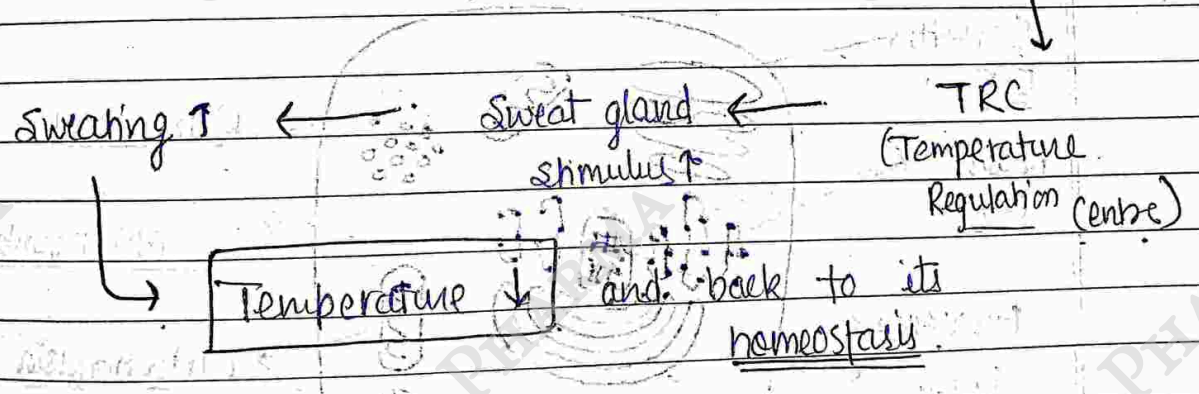 Sweating ↑ ← Sweat gland ← TRC
stimulus ↑ (Temperature
Regulation Centre)
Temperature ↓ and back to its
homeostasis.
PHARMA